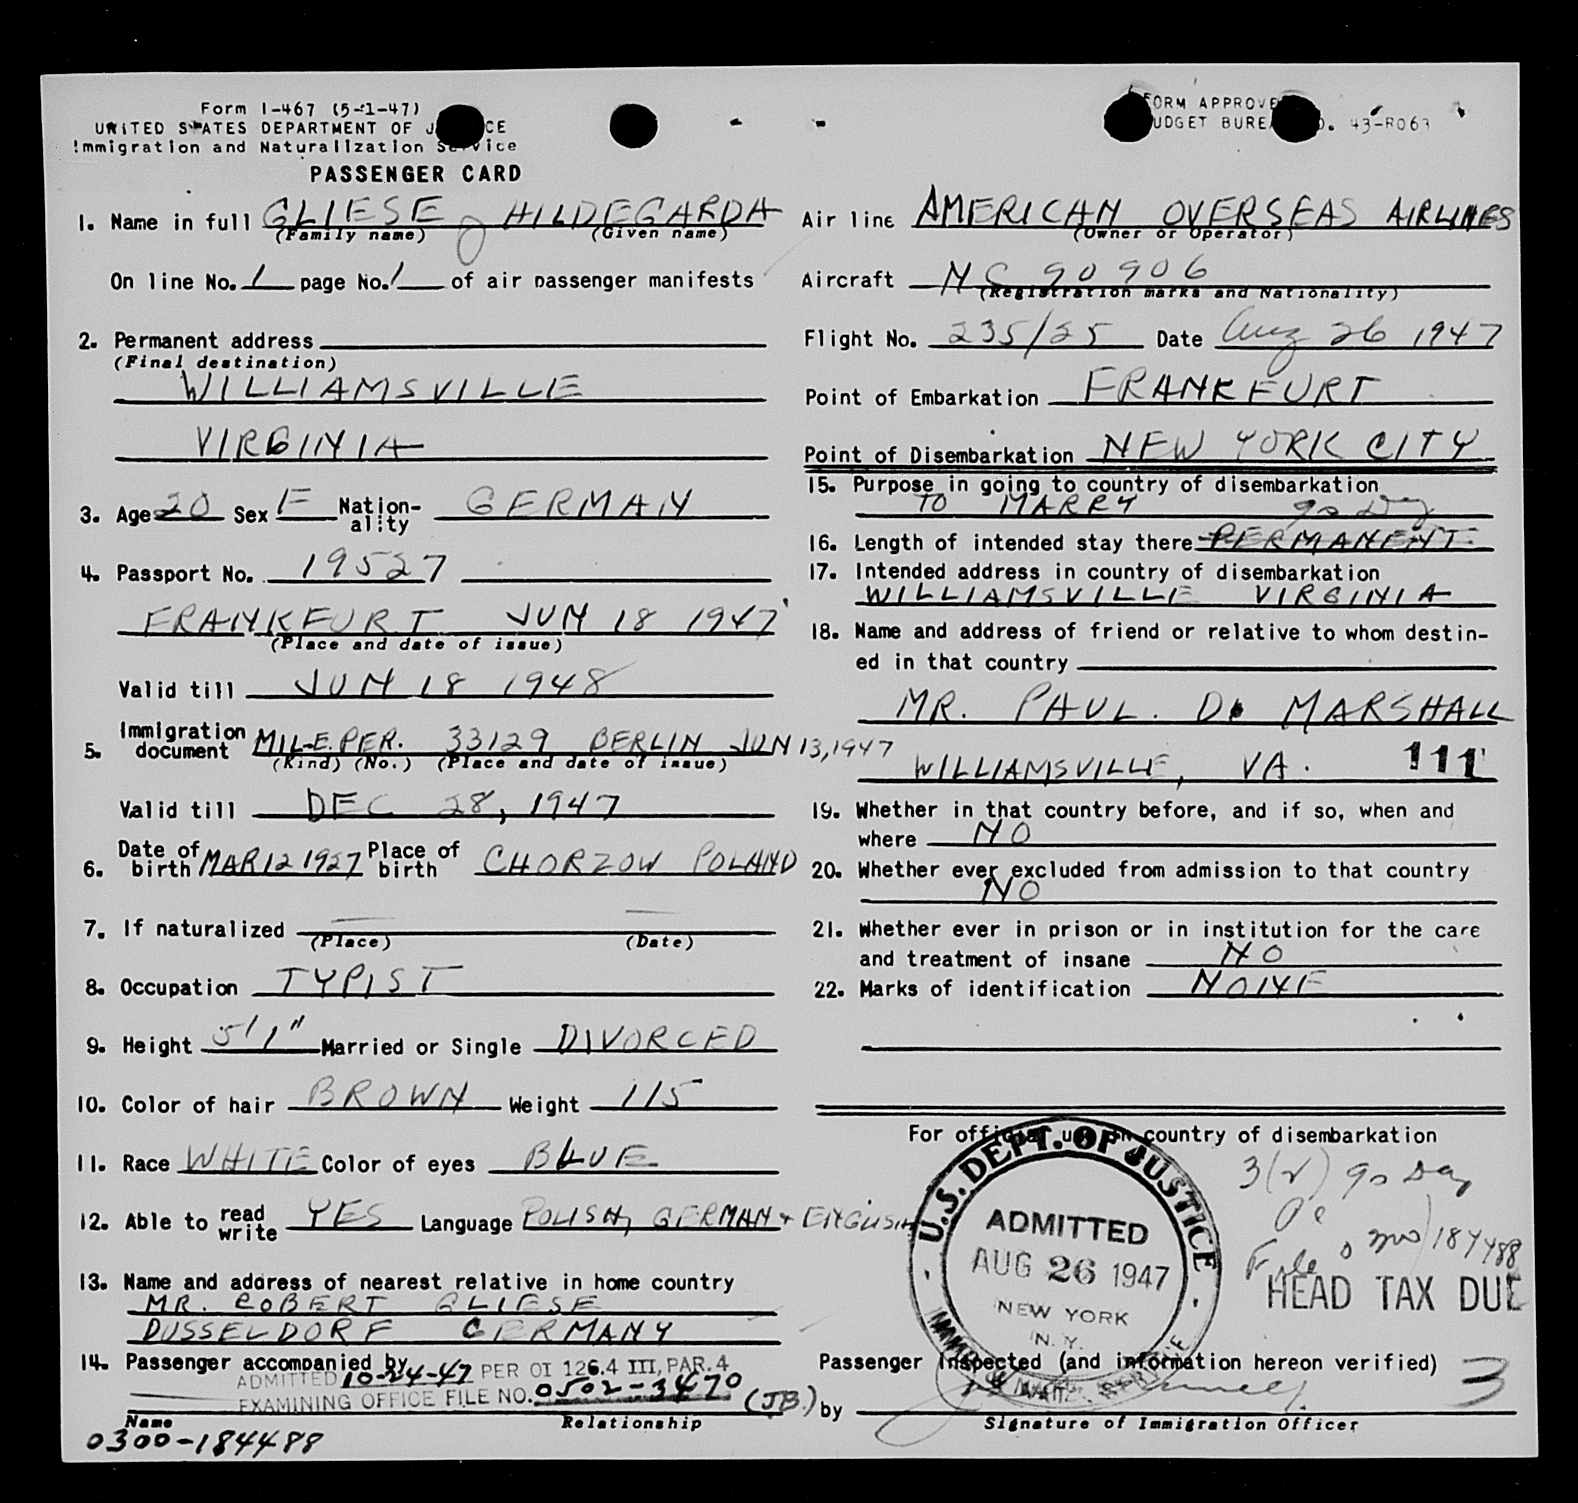 Form I-467 (5-1-47)
UNITED STATES DEPARTMENT OF J CE
Immigration and Naturalization Service
PASSENGER CARD
FORM APPROVE
UDGET BUREA O. 43-R063
1. Name in full GLIESE HILDEGARDA
(Family name) (Given name)
On line No. 1 page No. 1 of air passenger manifests
2. Permanent address
(Final destination)
WILLIAMSVILLE
VIRGINIA
3. Age 20 Sex F Nation-ality GERMAN
4. Passport No. 19527
FRANKFURT JUN 18 1947
(Place and date of issue)
Valid till JUN 18 1948
5. Immigration document MIL-E.PER. 33129 BERLIN JUN 13, 1947
(Kind) (No.) (Place and date of issue)
Valid till DEC 28, 1947
6. Date of birth MAR 12 1927 Place of birth CHORZOW POLAND
7. If naturalized — —
(Place) (Date)
8. Occupation TYPIST
9. Height 5'1" Married or Single DIVORCED
10. Color of hair BROWN Weight 115
11. Race WHITE Color of eyes BLUE
12. Able to read write YES Language POLISH, GERMAN + ENGLISH
13. Name and address of nearest relative in home country
MR. ROBERT GLIESE
DUSSELDORF GERMANY
14. Passenger accompanied by
ADMITTED 10-24-47 PER OI 126.4 III, PAR. 4
EXAMINING OFFICE FILE NO. 0502-3470 (JB.)
Name Relationship
0300-184488
Air line AMERICAN OVERSEAS AIRLINES
(Owner or Operator)
Aircraft NC 90906
(Registration marks and Nationality)
Flight No. 235/25 Date Aug 26 1947
Point of Embarkation FRANKFURT
Point of Disembarkation NEW YORK CITY
15. Purpose in going to country of disembarkation
TO MARRY 90 Day
16. Length of intended stay there PERMANENT
17. Intended address in country of disembarkation
WILLIAMSVILLE VIRGINIA
18. Name and address of friend or relative to whom destin-
ed in that country
MR. PAUL. D. MARSHALL
WILLIAMSVILLE, VA. 111
19. Whether in that country before, and if so, when and
where NO
20. Whether ever excluded from admission to that country
NO
21. Whether ever in prison or in institution for the care
and treatment of insane NO
22. Marks of identification NONE
For official use in country of disembarkation
U.S. DEPT. OF JUSTICE
ADMITTED
AUG 26 1947
NEW YORK
N.Y.
3(2) 90 Day
File 184488
HEAD TAX DUE
Passenger Inspected (and information hereon verified) 3
by
Signature of Immigration Officer